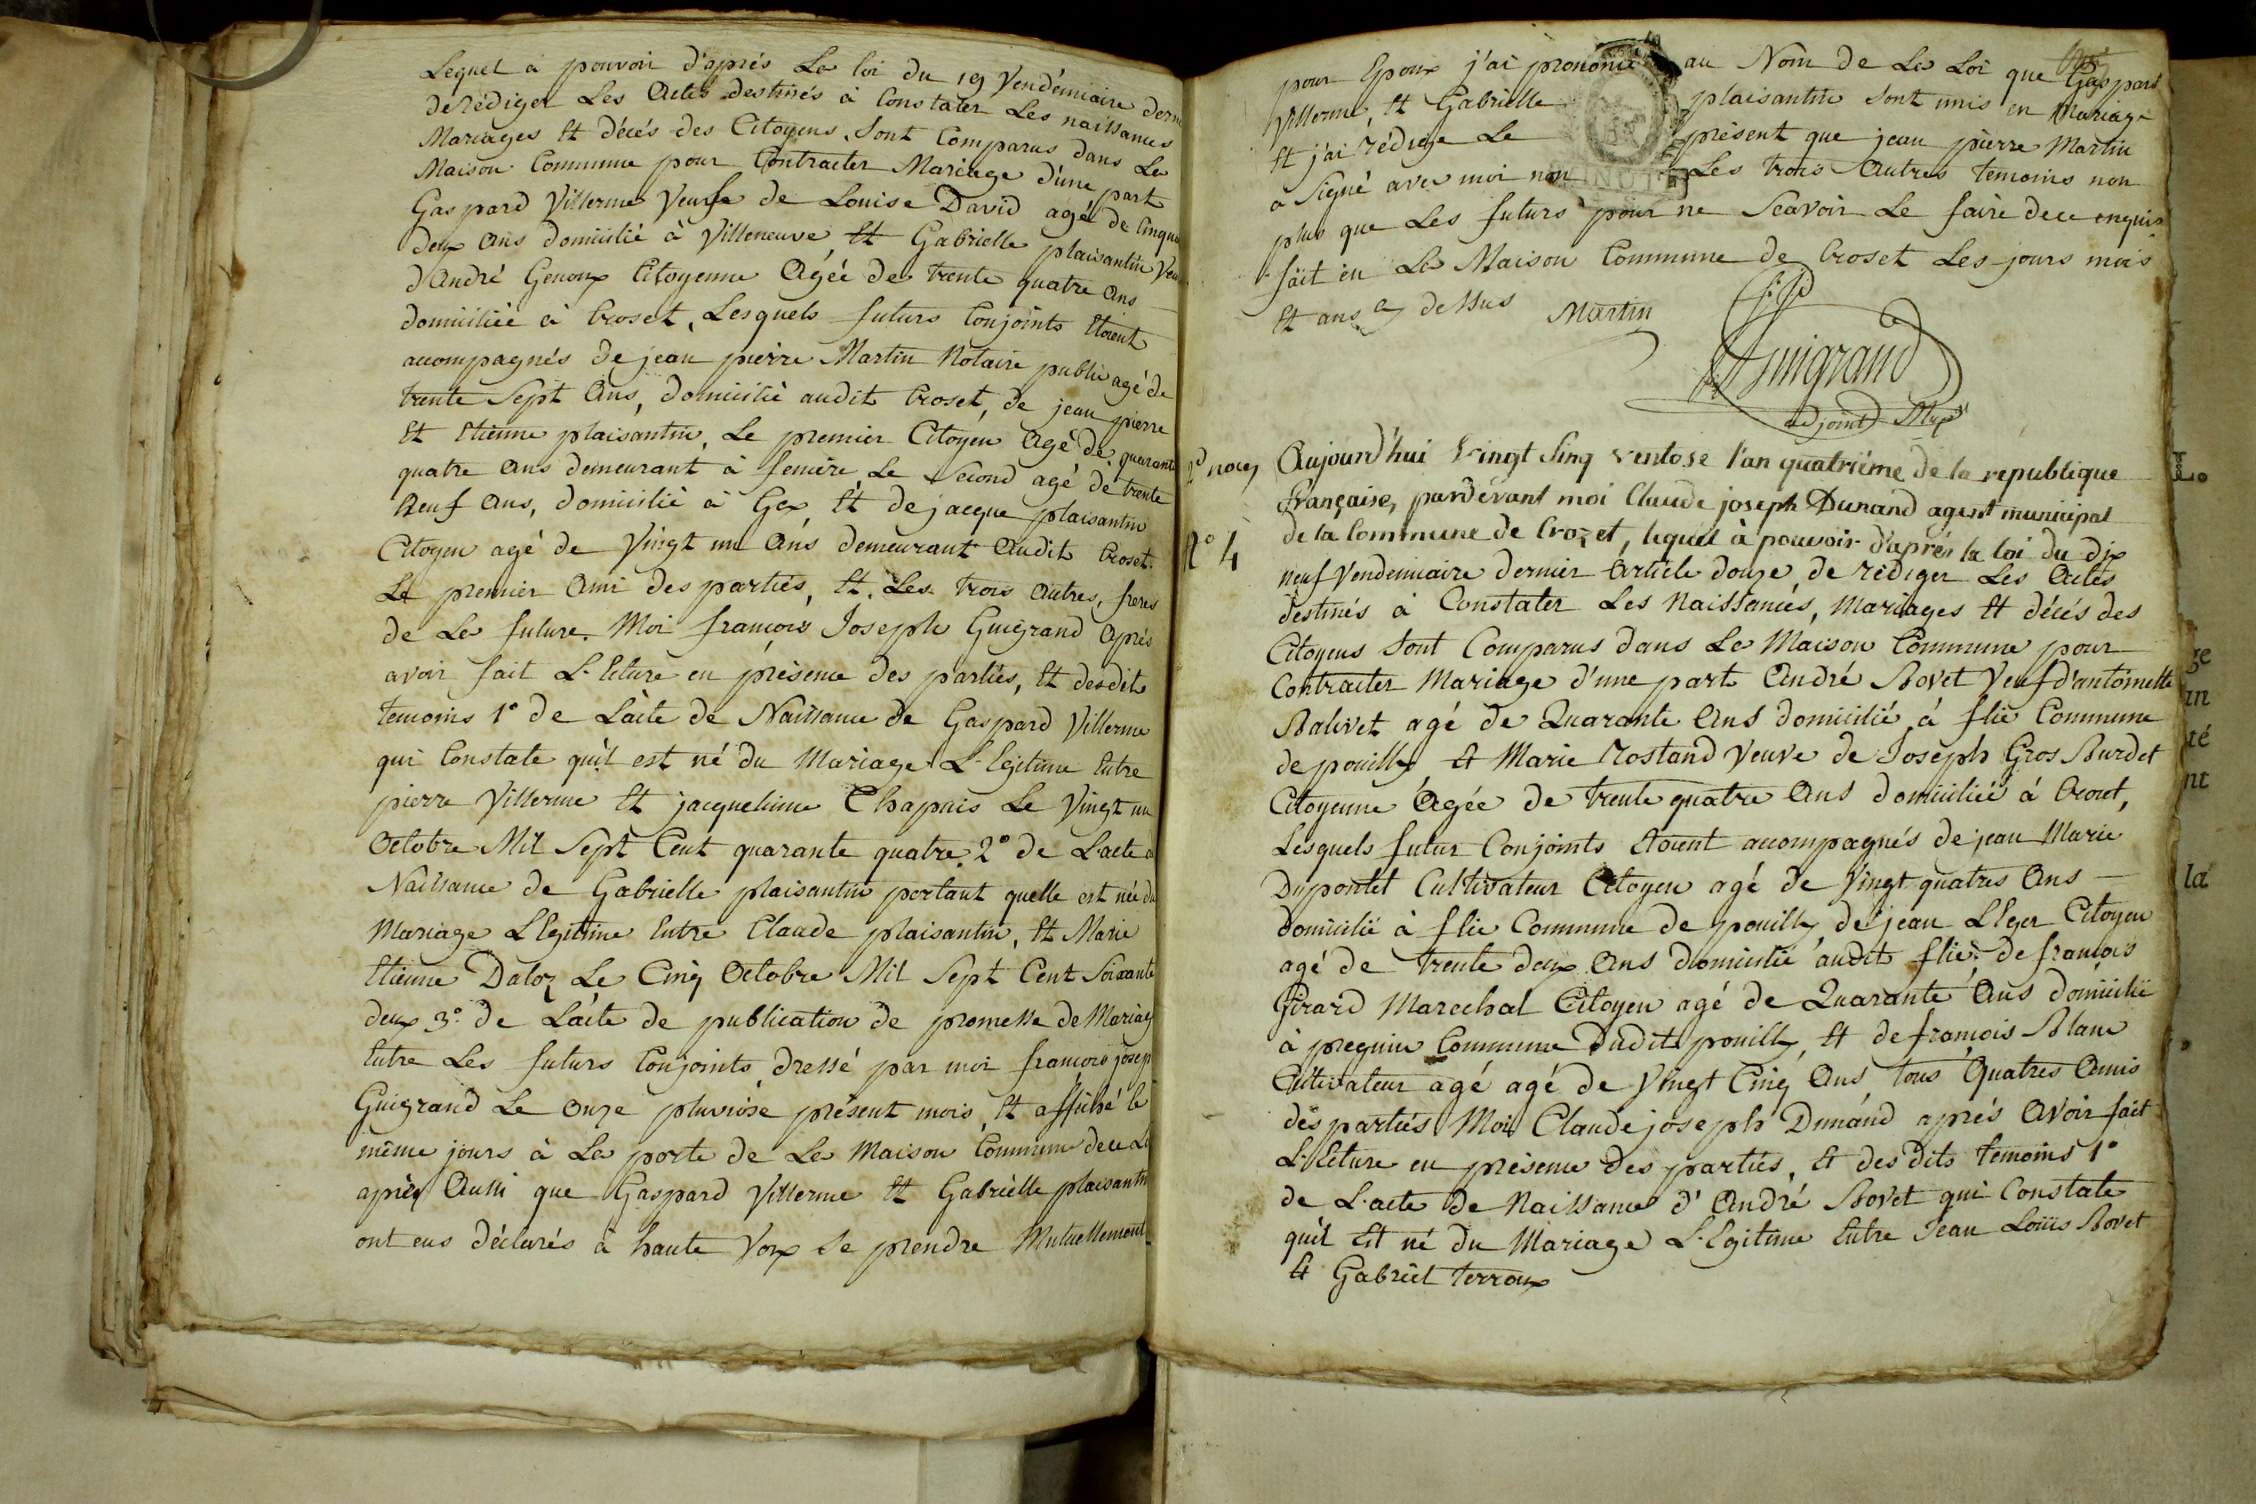 Lequel a pouvoir d'aprés La loi du 19 Vendémiaire dern
de rédiger Les Actes destinés à Constater Les naissances
Mariages Et décés des Citoyens, Sont Comparus dans La
Maison Commune pour Contracter Mariage d'une part
Gaspard Villerme Veuf de Louise David agé de Cinqua
deux ans domicilié à Villeneuve, Et Gabrielle plaisantin Veu
d'André Genoux Citoyenne Agée de trente quatre ans
domiciliée à Croset, Lesquels futurs Conjoints Etoient
acompagnés de jean pierre Martin Notaire public agé de
trente Sept Ans, domicilié audit Croset, de jean pierre
Et Etienne plaisantin, Le premier Citoyen Agé de quarante
quatre ans demeurant à Le Second agé de trente
Neuf Ans, domicilié à Gex, Et de jacque plaisantin
Citoyen agé de Vingt un Ans demeurant Audit Croset.
Le premier Ami des parties, Et Les trois autres, freres
de La future. Moi francois Joseph Guigrand Aprés
avoir fait L.Eture en présence des parties, Et desdits
temoins 1° de L'acte de Naissance de Gaspard Villerme
qui Constate qu'il est né du Mariage L.Egitime Entre
pierre Villerme Et jacquelinne Chapuis Le Vingt un
Octobre Mil Sept Cent quarante quatre, 2° de L'acte d
Naissance de Gabrielle plaisantin portant quelle est née du
Mariage LEgitime Entre Claude plaisantin, Et Marie
Etienne Daloz Le Cinq Octobre Mil Sept Cent Soixante
deux 3° de L'acte de publication de promesse de Mariag
Entre Les futurs Conjoints dressé par moi francois josep
Guigrand Le Onze pluviôse présent mois, Et affiché le
même jours à La porte de La Maison Commune de ce Li
aprés Aussi que Gaspard Villerme Et Gabrielle plaisantin
ont eus déclarés à haute Voix Se prendre Mutuellement
pour Epoux j'ai prononcé au Nom de La Loi que Gaspard
Villerme, Et Gabrielle plaisantin Sont unis en Mariage
Et j'ai rédigé Le présent que jean pierre Martin
a Signé avec moi non Les trois Autres temoins non
plus que Les futurs pour ne Scavoir Le faire de ce enquis
fait en La Maison Commune de Croset Les jours mois
Et ans dessus Martin
Guigrand
adjoint
N° 4
Aujourd'hui Vingt Sinq ventose l'an quatriéme de la republique
française, pardevant moi Claude joseph Dunand agent municipal
de la Commune de Crozet, lequel à pouvoir d'aprés la loi du dix
neuf Vendemiaire dernier article douze, de rédiger Les Actes
destinés à Constater Les Naissances, Mariages Et décés des
Citoyens Sont Comparus dans La Maison Commune pour
Contracter Mariage d'une part André Bovet Veuf d'antoinette
Balivet agé de Quarante Ans domicilié à flie Commune
de pouilly Et Marie Rostand Veuve de Joseph Gros Burdet
Citoyenne Agée de trente quatre Ans domiciliée à Croset,
Lesquels futur Conjoints Etoient acompagnés de jean Marie
Dupontet Cultivateur Citoyen agé de Vingt quatres Ans
domicilié à flie Commune de pouilly de jean LEger Citoyen
agé de trente deux Ans domicilié audit flie, de francois
Girard Marechal Citoyen agé de Quarante Ans domicilié
à pregnin Commune Dudit pouilly, Et de francois Blanc
Cultivateur agé agé de Vingt Cinq Ans tous Quatres Amis
des parties Moi Claude joseph Dunand aprés Avoir fait
L.Eture en présence des parties, Et des dits temoins 1°
de L.acte de Naissance d'André Bovet qui Constate
qu'il Et né du Mariage L.Egitime Entre Jean Louis Bovet
Et Gabriel terroux